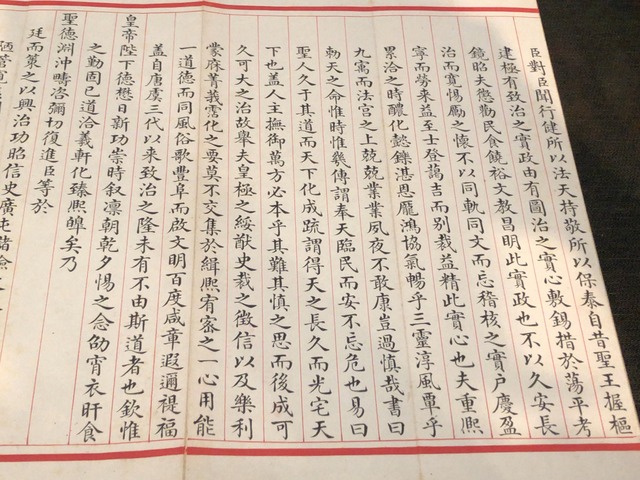 臣對臣聞行健所以法天持敬所以保泰自昔聖王握樞
建極有致治之實政由有圖治之實心敷錫措於蕩平考
鏡昭夫懲勸民食饒裕文教昌明此實政也不以久安長
治而寬惕厲之懷不以同軌同文而忘稽核之實户慶盈
寧而勞來益至士登藹吉而別裁益精此實心也夫重熙
累洽之時醲化懿鑠湛恩厖鴻協氣暢乎三靈淳風覃乎
九寓而法宮之上兢兢業業夙夜不敢康豈過慎哉書曰
勑天之命惟時惟幾傳謂奉天臨民而安不忘危也易曰
聖人久于其道而天下化成疏謂得天之長久而光宅天
下也蓋人主撫御萬方必本乎其難其慎之思而後成可
久可大之治故舉夫皇極之綏猷史裁之徵信以及樂利
蒙庥菁莪霑化之要莫不交集於緝熙宥密之一心用能
一道德而同風俗歌豐阜而啟文明百度咸章遐邇禔福
蓋自唐虞三代以來致治之隆未有不由斯道者也欽惟
皇帝陛下德懋日新功崇時叙凛朝乾夕惕之念劭宵衣旰食
之勤固已道洽羲軒化臻熙皥矣乃
聖德淵沖疇咨彌切復進臣等於
廷而策之以興治功昭信史廣屯儲
陋管窺